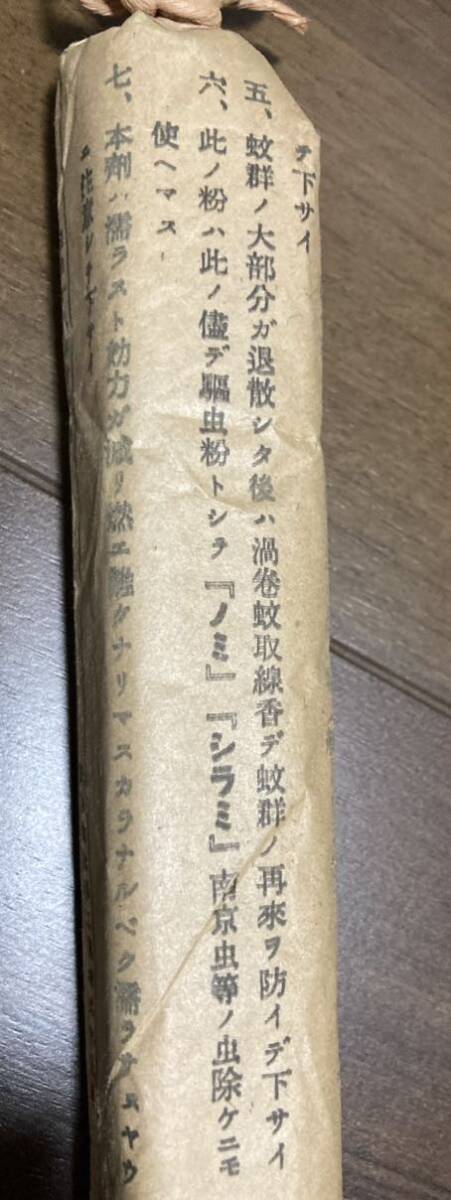 テ下サイ
五、蚊群ノ大部分ガ退散シタ後ハ渦巻蚊取線香デ蚊群ノ再來ヲ防イデ下サイ
六、此ノ粉ハ此ノ儘デ驅虫粉トシテ『ノミ』『シラミ』南京虫等ノ虫除ケニモ
使ヘマス
七、本劑ハ濡ラスト効力ガ減リ燃エ難クナリマスカラナルベク濡ラサヌヤウ
ニ注意シテ下サイ